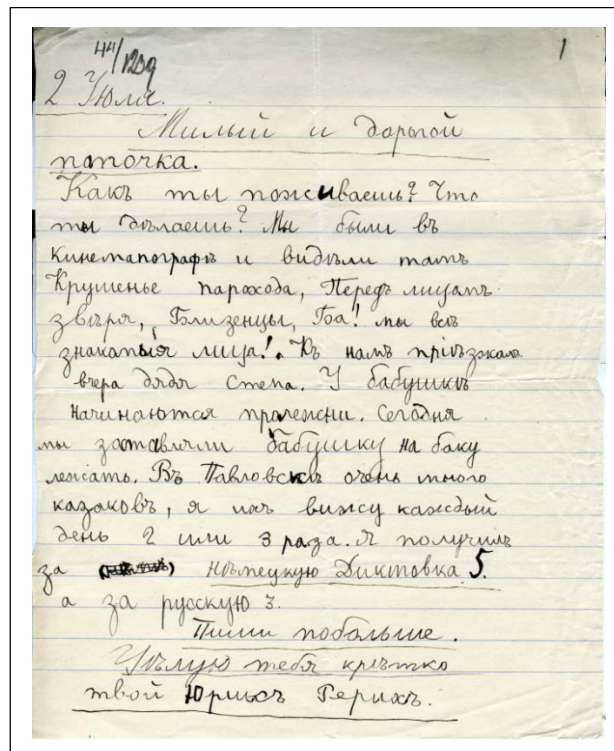 44/1209
1
2 Июля.
Милый и дорогой
папочка.
Какъ ты поживаешь? Что
ты дѣлаешь? Мы были въ
кинематографѣ и видѣли тамъ
Крушенье парохода, Передъ лицамъ
звѣря, Близенцы, Ба! мы всѣ
знакомыя лица!. Къ намъ приѣзжалъ
вчера дядя Степа. У бабушкѣ
начинаются пралежни. Сегодня
мы заставили бабушку на баку
лежать. Въ Павловскѣ очень много
казаковъ, я ихъ вижу каждый
день 2 или 3 раза. Я получилъ
за нѣмецкую Диктовка 5.
а за русскую 3.
Пиши побольше.
Цѣлую тебя крѣпко
твой Юрикъ Рерихъ.